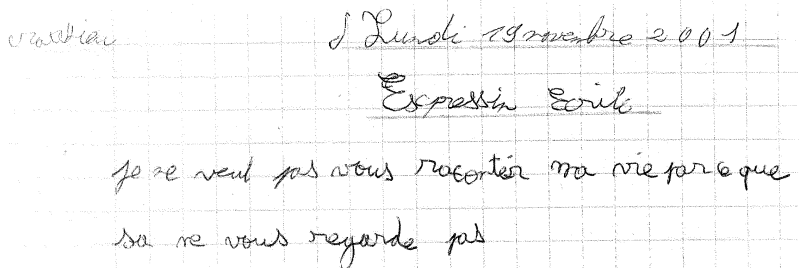 Lundi 19 novembre 2001
Expressin Ecrite
je ne veut pas vous raconter ma vie parce que
sa ne vous regarde pas